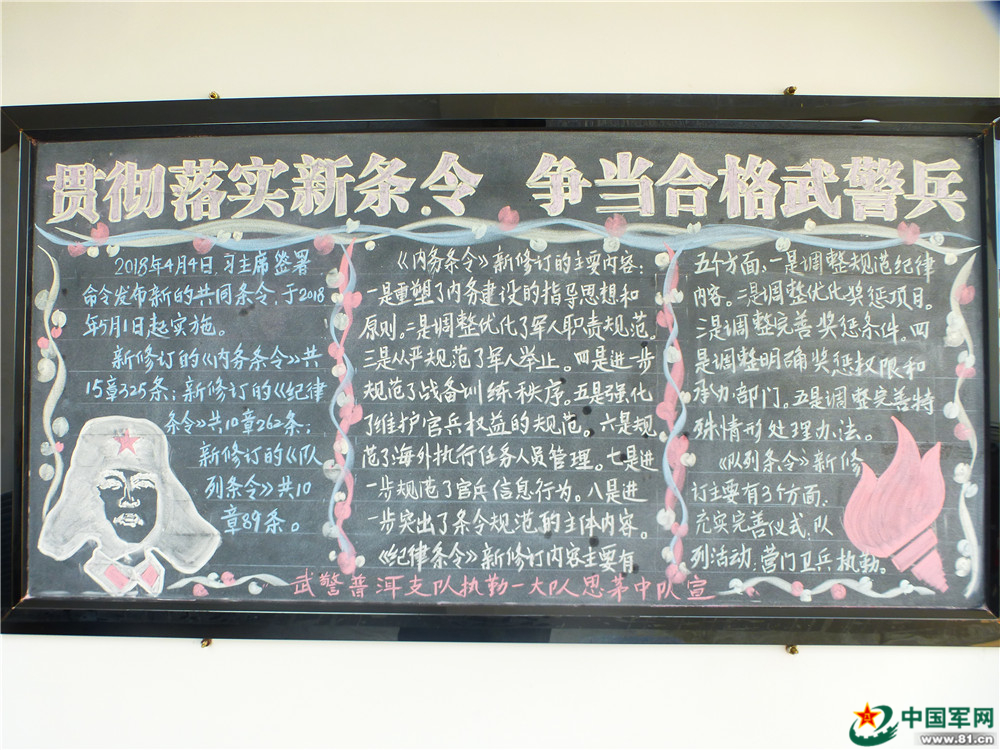 贯彻落实新条令 争当合格武警兵
2018年4月4日,习主席签署
命令发布新的共同条令,于2018
年5月1日起实施。
新修订的《内务条令》共
15章325条;新修订的《纪律
条令》共10章262条;
新修订的《队
列条令》共10
章89条。
《内务条令》新修订的主要内容:
一是重塑了内务建设的指导思想和
原则。二是调整优化了军人职责规范。
三是从严规范了军人举止。四是进一步
规范了战备训练秩序。五是强化
了维护官兵权益的规范。六是规
范了海外执行任务人员管理。七是进
一步规范了官兵信息行为。八是进
一步突出了条令规范的主体内容。
《纪律条令》新修订内容主要有
五个方面,一是调整规范纪律
内容。二是调整优化奖惩项目。
三是调整完善奖惩条件。四
是调整明确奖惩权限和
承办部门。五是调整完善特
殊情形处理办法。
《队列条令》新修
订主要有3个方面,
充实完善仪式,队
列活动,营门卫兵执勤。
武警普洱支队执勤一大队思茅中队宣
中国军网
www.81.cn